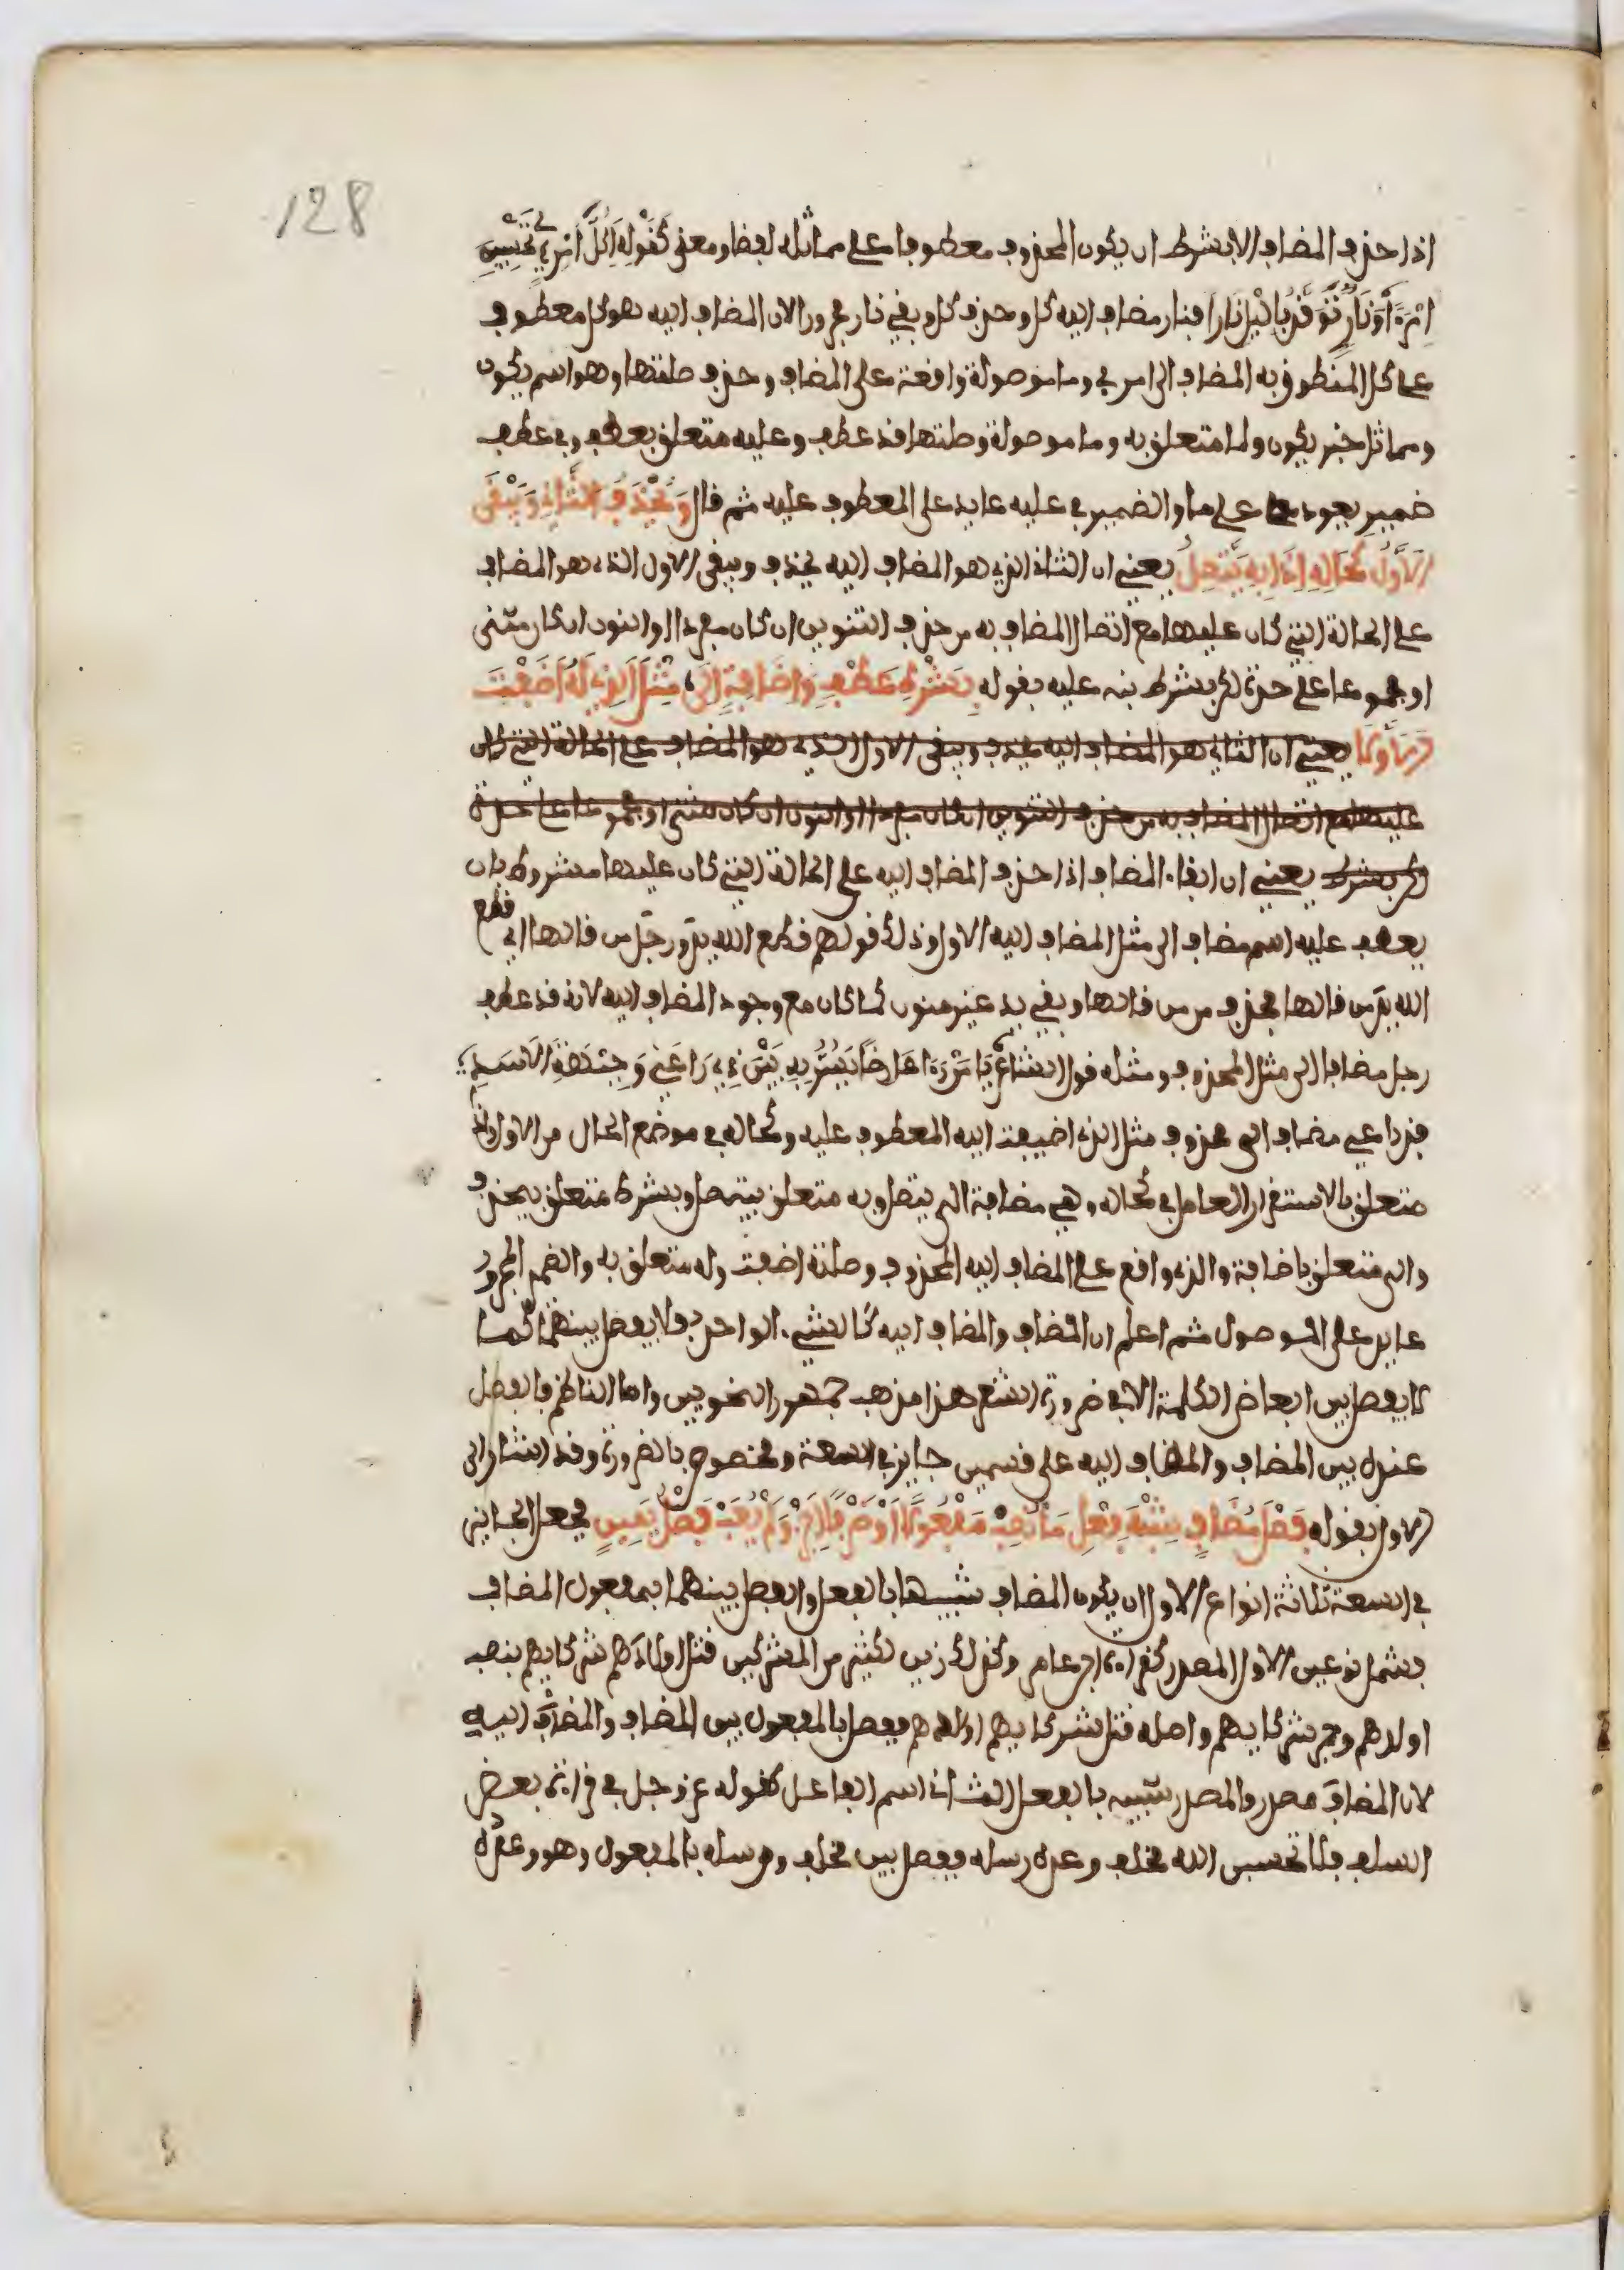 128
اذا حذف المضاف الا بشرط ان يكون المحذوف معطوفا على مماثله لفظا ومعنى كقوله اكل امرئ تحسبين
امرءا ونار توقد بالليل نارا فنار مضاف اليه كل وحذف كل وبقي نار مجرورا لان المضاف اليه هو كل معطوف
على كل المنطوق به المضاف الى امرئ وما موصولة واقعة على المضاف وحذف صلتها وهو اسم يكون
ومماثلا خبر يكون ولما متعلق به وما موصولة وصلتها قد عطف وعليه متعلق بعطف وفي عطف
ضمير يعود على ما والضمير في عليه عايد على المعطوف عليه ثم قال وَيُحْذَفُ الثَّانِي وَيَبْقَى
الاَوَّلُ كَحَالِهِ اِذَا بِهِ يَتَّصِلُ يعني ان الثاني الذي هو المضاف اليه يحذف ويبقى الاول الذي هو المضاف
على الحالة التي كان عليها مع اتصال المضاف به من حذف التنوين ان كان مفردا او النون ان كان مثنى
او مجموعا على حده لكن بشرط نبه عليه بقوله بِشَرْطِ عَطْفٍ وَاِضَافَةٍ اِلَى مِثْلِ الَّذِي لَهُ اَضَفْتَ
الاَوَّلا يعني ان الثاني هو المضاف اليه يحذف ويبقى الاول الذي هو المضاف على الحالة التي كان
عليها مع اتصال المضاف به من حذف التنوين ان كان مفردا او النون ان كان مثنى او مجموعا على حده
لكن بشرط يعني ان ابقاء المضاف اذا حذف المضاف اليه على الحالة التي كان عليها مشروط بان
يعطف عليه اسم مضاف الى مثل المضاف اليه الاول وذلك قولهم قطع الله يد ورجل من قالها اي قطع
الله يد من قالها فحذف من من قالها وبقي يد غير منون كما كان مع وجود المضاف اليه لانه قد عطف
رجل مضافا الى مثل المحذوف ومثله قول الشاعر يَا مَنْ رَءَا عَارِضًا يُسَرُّ بِهِ بَيْنَ ذِرَاعَيْ وَجَبْهَةِ الاَسَدِ
فذراعي مضاف الى محذوف مثل الذي اضيفت اليه المعطوف عليه وكحاله في موضع الحال من الاول واذا
متعلق بالاستقرار العامل في كحاله وهي مضافة الى يتصل وبه متعلق بيتصل وبشرط متعلق بيحذف
والى متعلق باضافة والذي واقع على المضاف اليه المحذوف وصلته اضفت وله متعلق به والضمير المجرور
عايد على الموصول ثم اعلم ان المضاف والمضاف اليه كالشيء الواحد فلا يفصل بينهما كما
لا يفصل بين ابعاض الكلمة الا في ضرورة الشعر هذا مذهب جمهور النحويين واما الناظم فالفصل
عنده بين المضاف والمضاف اليه على قسمين جايز في السعة ومخصوص بالضرورة وقد اشار الى
الاول بقوله فَصْلَ مُضَافٍ شِبْهِ فِعْلٍ مَا نَصَبْ مَفْعُولًا اَوْ ظَرْفًا اَجِزْ وَلَمْ يُعَبْ فَصْلُ يَمِينٍ فجعل الجايز
في السعة ثلاثة انواع الاول ان يكون المضاف شبيها بالفعل والفصل بينهما بمفعول المضاف
فشمل نوعين الاول المصدر كقراءة ابن عامر وكذلك زين لكثير من المشركين قتل اولادهم شركايهم بنصب
اولدهم وجر شركايهم واصله قتل شركايهم اولادهم ففصل بالمفعول بين المضاف والمضاف اليه
لان المضاف مصدر والمصدر شبيه بالفعل الثاني اسم الفاعل كقوله عز وجل في قراءة بعض
السلف فلا تحسبن الله مخلف وعده رسله ففصل بين مخلف ورسله بالمفعول وهو وعده